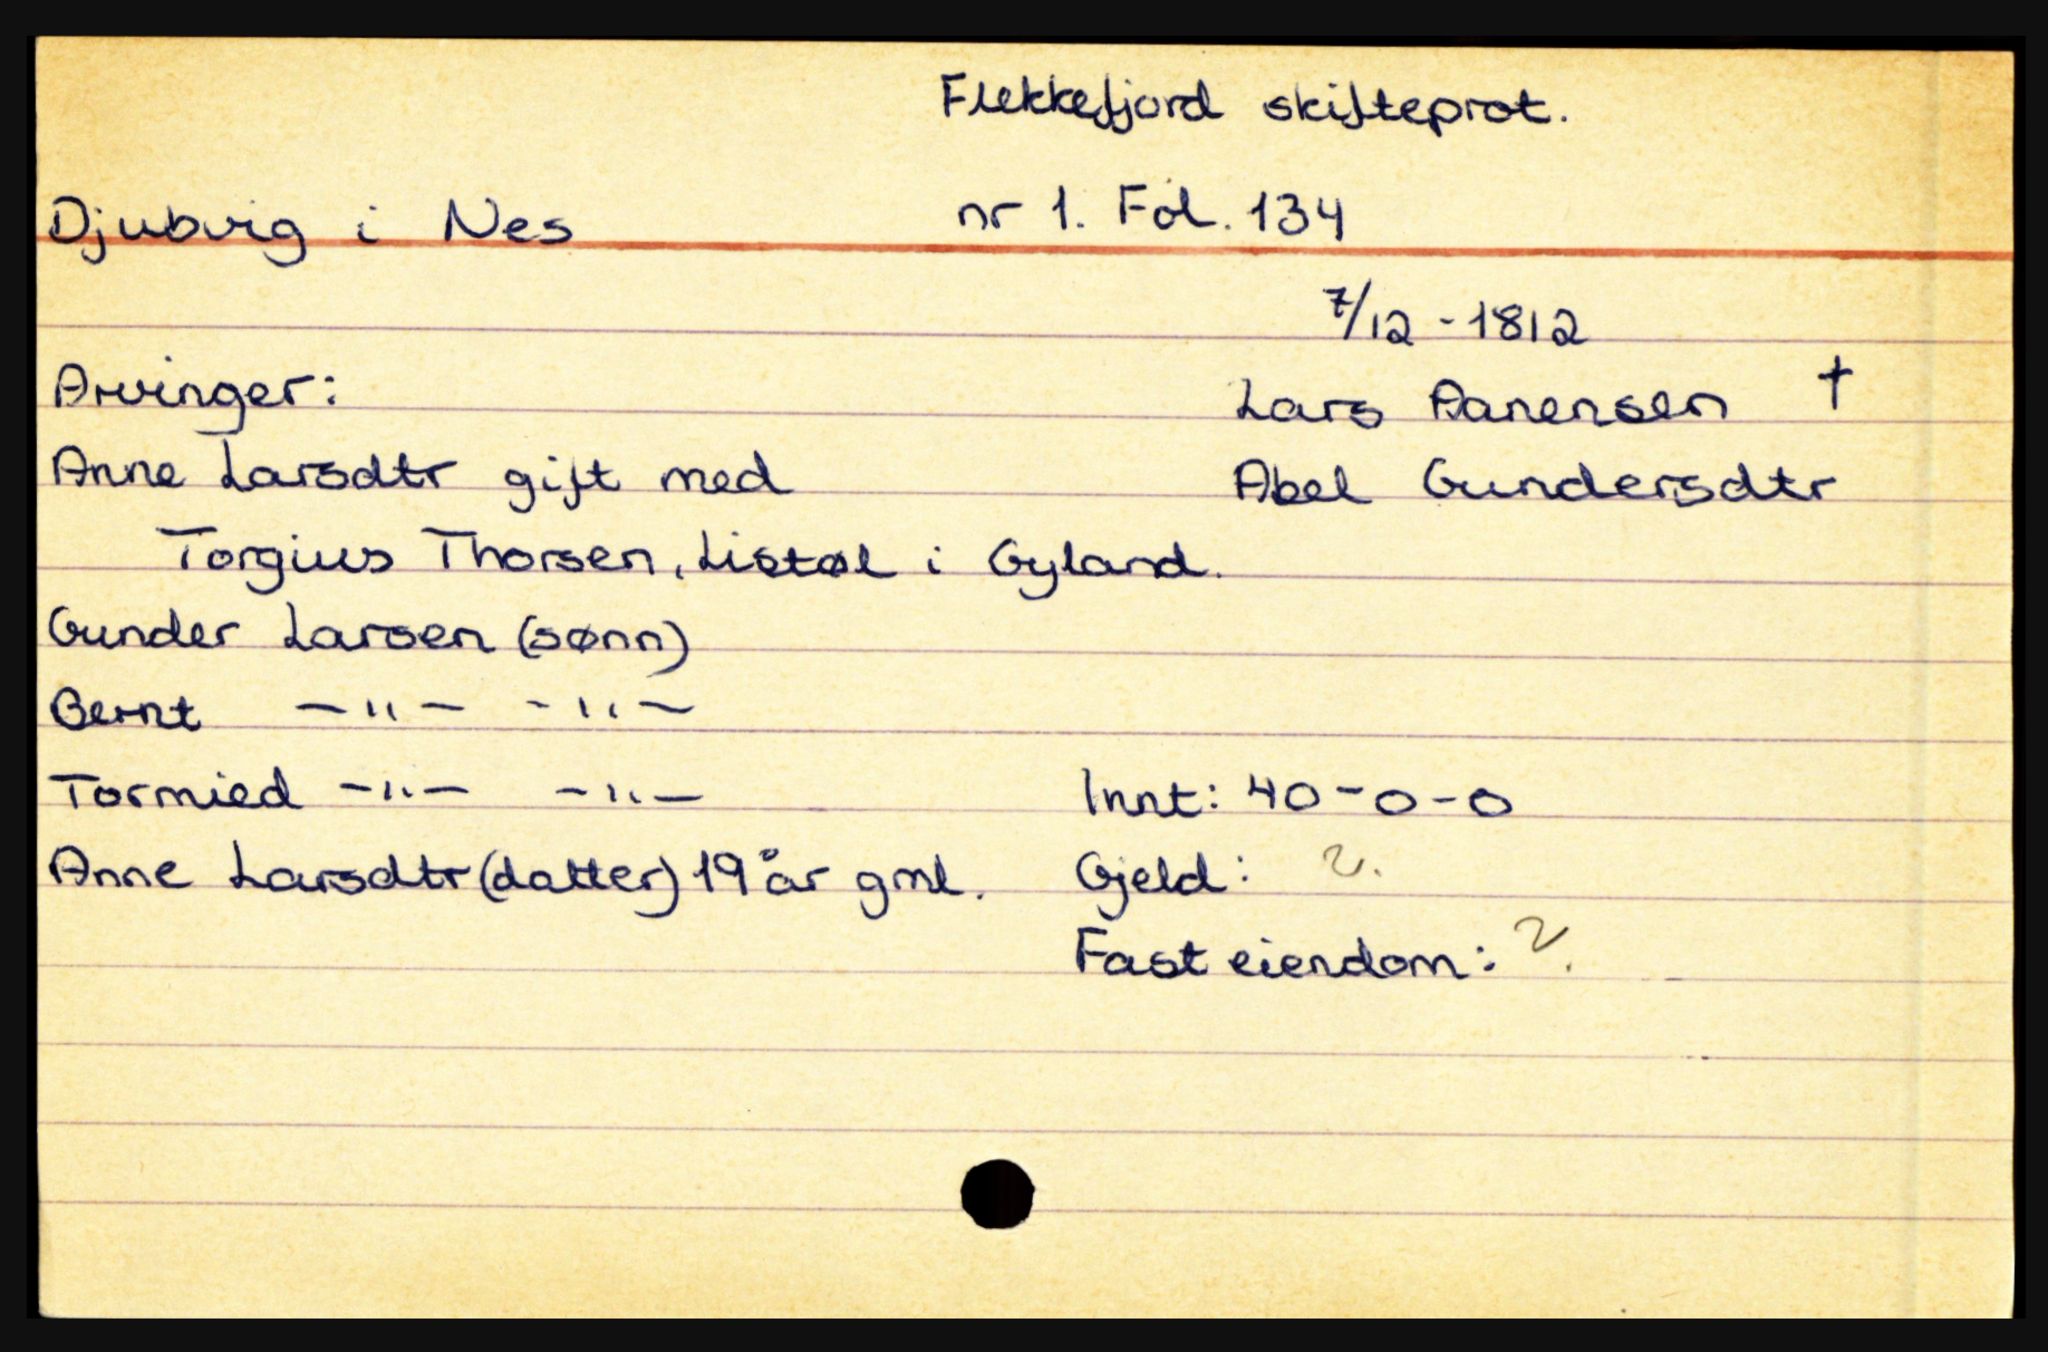 Flekkefjord skifteprot.
Djubvig i Nes nr 1. Fol. 134
7/12 - 1812
Arvinger: Lars Aanensen †
Anne Larsdtr gift med Abel Gundersdtr
Torgius Thorsen, Listøl i Gyland.
Gunder Larsen (sønn)
Bernt -"- -"-
Tormied -"- -"- Innt: 40-0-0
Anne Larsdtr (datter) 19 år gml. Gjeld: ?
Fast eiendom: ?